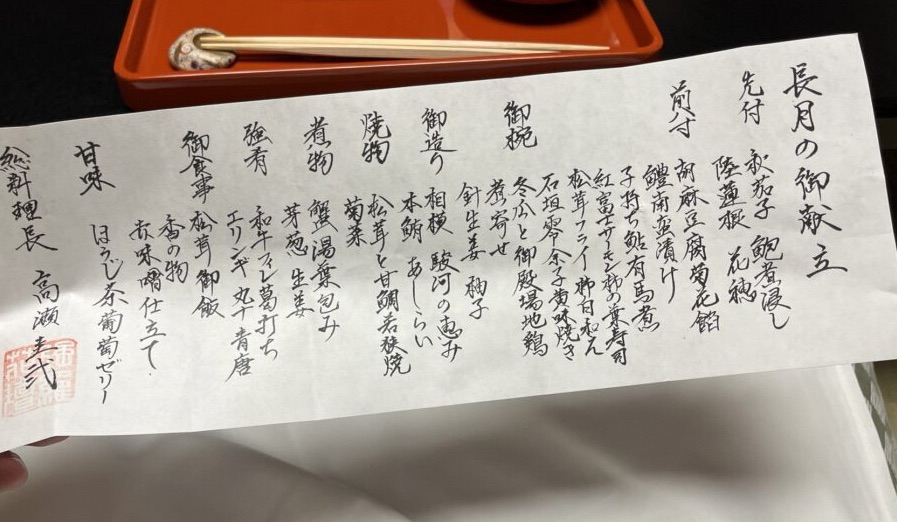 長月の御献立
先付
秋茄子 鮑煮浸し
陸蓮根 花穂
前付
胡麻豆腐菊花餡
鱧南蛮漬け
子持ち鮎有馬煮
紅富士サーモン柿の葉寿司
松茸フライ 柿白和え
石垣零余子黄味焼き
御椀
冬瓜と御殿場地鶏
煮寄せ
針生姜 柚子
御造り
相模 駿河の恵み
本鮪 あしらい
焼物
松茸と甘鯛若狭焼
菊菜
煮物
蟹湯葉包み
芽葱 生姜
強肴
和牛フィレ葛打ち
エリンギ 丸十 青唐
御食事
松茸御飯
香の物
赤味噌仕立て
甘味
ほうじ茶葡萄ゼリー
総料理長 高瀬圭弐